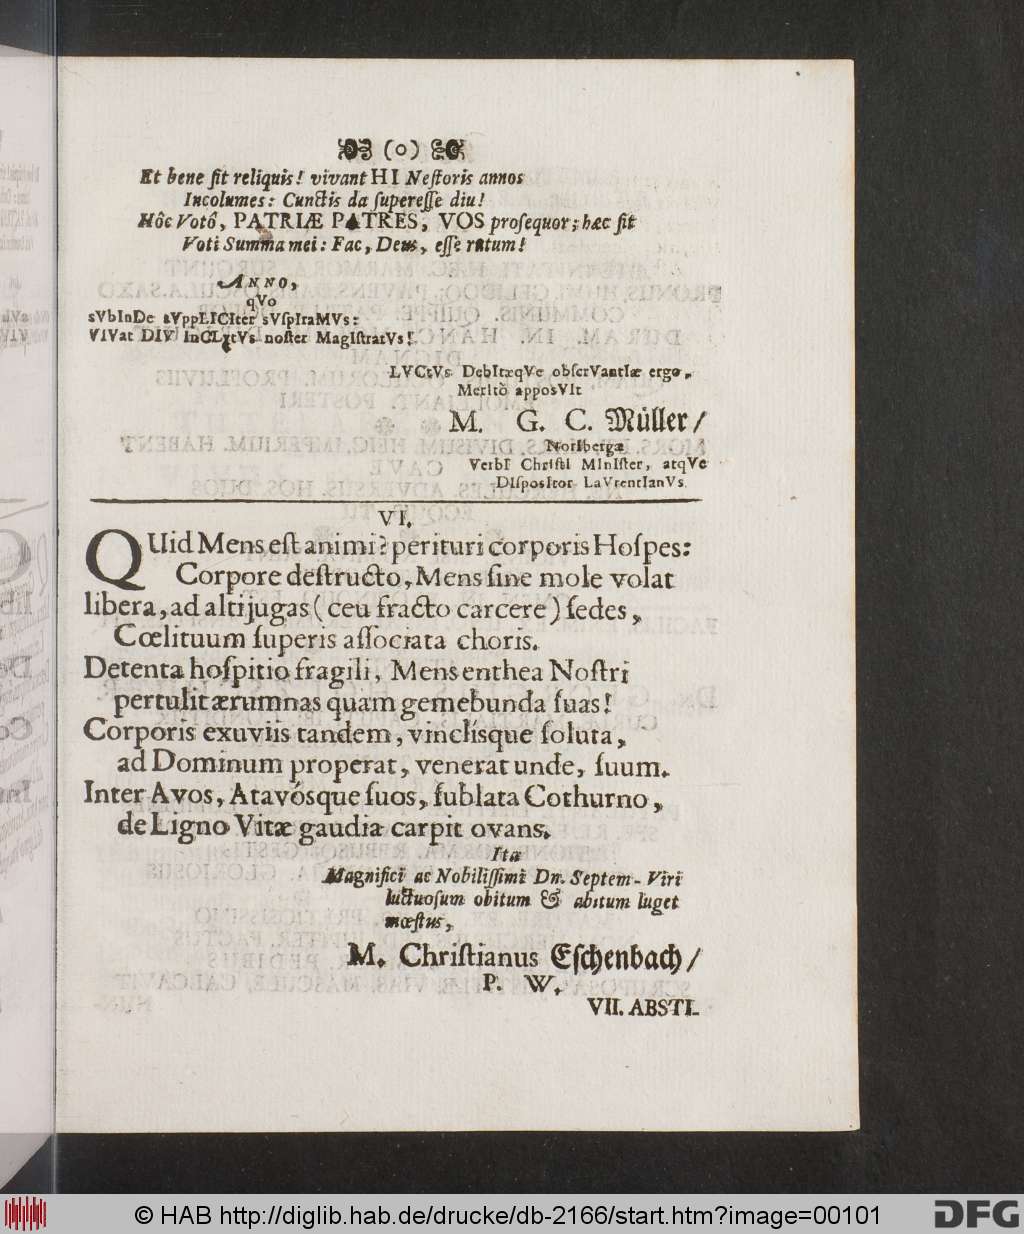 (o)
Et bene ſit reliquis! vivant HI Neſtoris annos
Incolumes: Cunctis da ſupereſſe diu!
Hôc Votô, PATRIÆ PATRES, VOS proſequor; hæc ſit
Voti Summa mei: Fac, Deus, eſſe ratum!
ANNO,
qVo
sVbInDe sVppLICIter sVſpIraMVs:
VIVat DIV InCLytVs noſter MagIſtratVs!
LVCtVs DebItæqVe obſerVantIæ ergo,
MerItò apposVIt
M. G. C. Müller/
NorIbergæ
VerbI ChrIſtI MInIſter, atqVe
DIſposItor LaVrentIanVs.
VI.
QUid Mens eſt animi? perituri corporis Hoſpes:
Corpore deſtructo, Mens ſine mole volat
libera, ad altijugas (ceu fracto carcere) ſedes,
Cœlituum ſuperis aſſociata choris.
Detenta hoſpitio fragili, Mens enthea Noſtri
pertulit ærumnas quam gemebunda ſuas!
Corporis exuviis tandem, vinclísque ſoluta,
ad Dominum properat, venerat unde, ſuum.
Inter Avos, Atavósque ſuos, ſublata Cothurno,
de Ligno Vitæ gaudia carpit ovans.
Ita
Magnifici ac Nobiliſſimi Dn. Septem-Viri
luctuoſum obitum & abitum luget
mœſtus,
M. Chriſtianus Eſchenbach/
P. W.
VII. ABSTI-
© HAB http://diglib.hab.de/drucke/db-2166/start.htm?image=00101
DFG